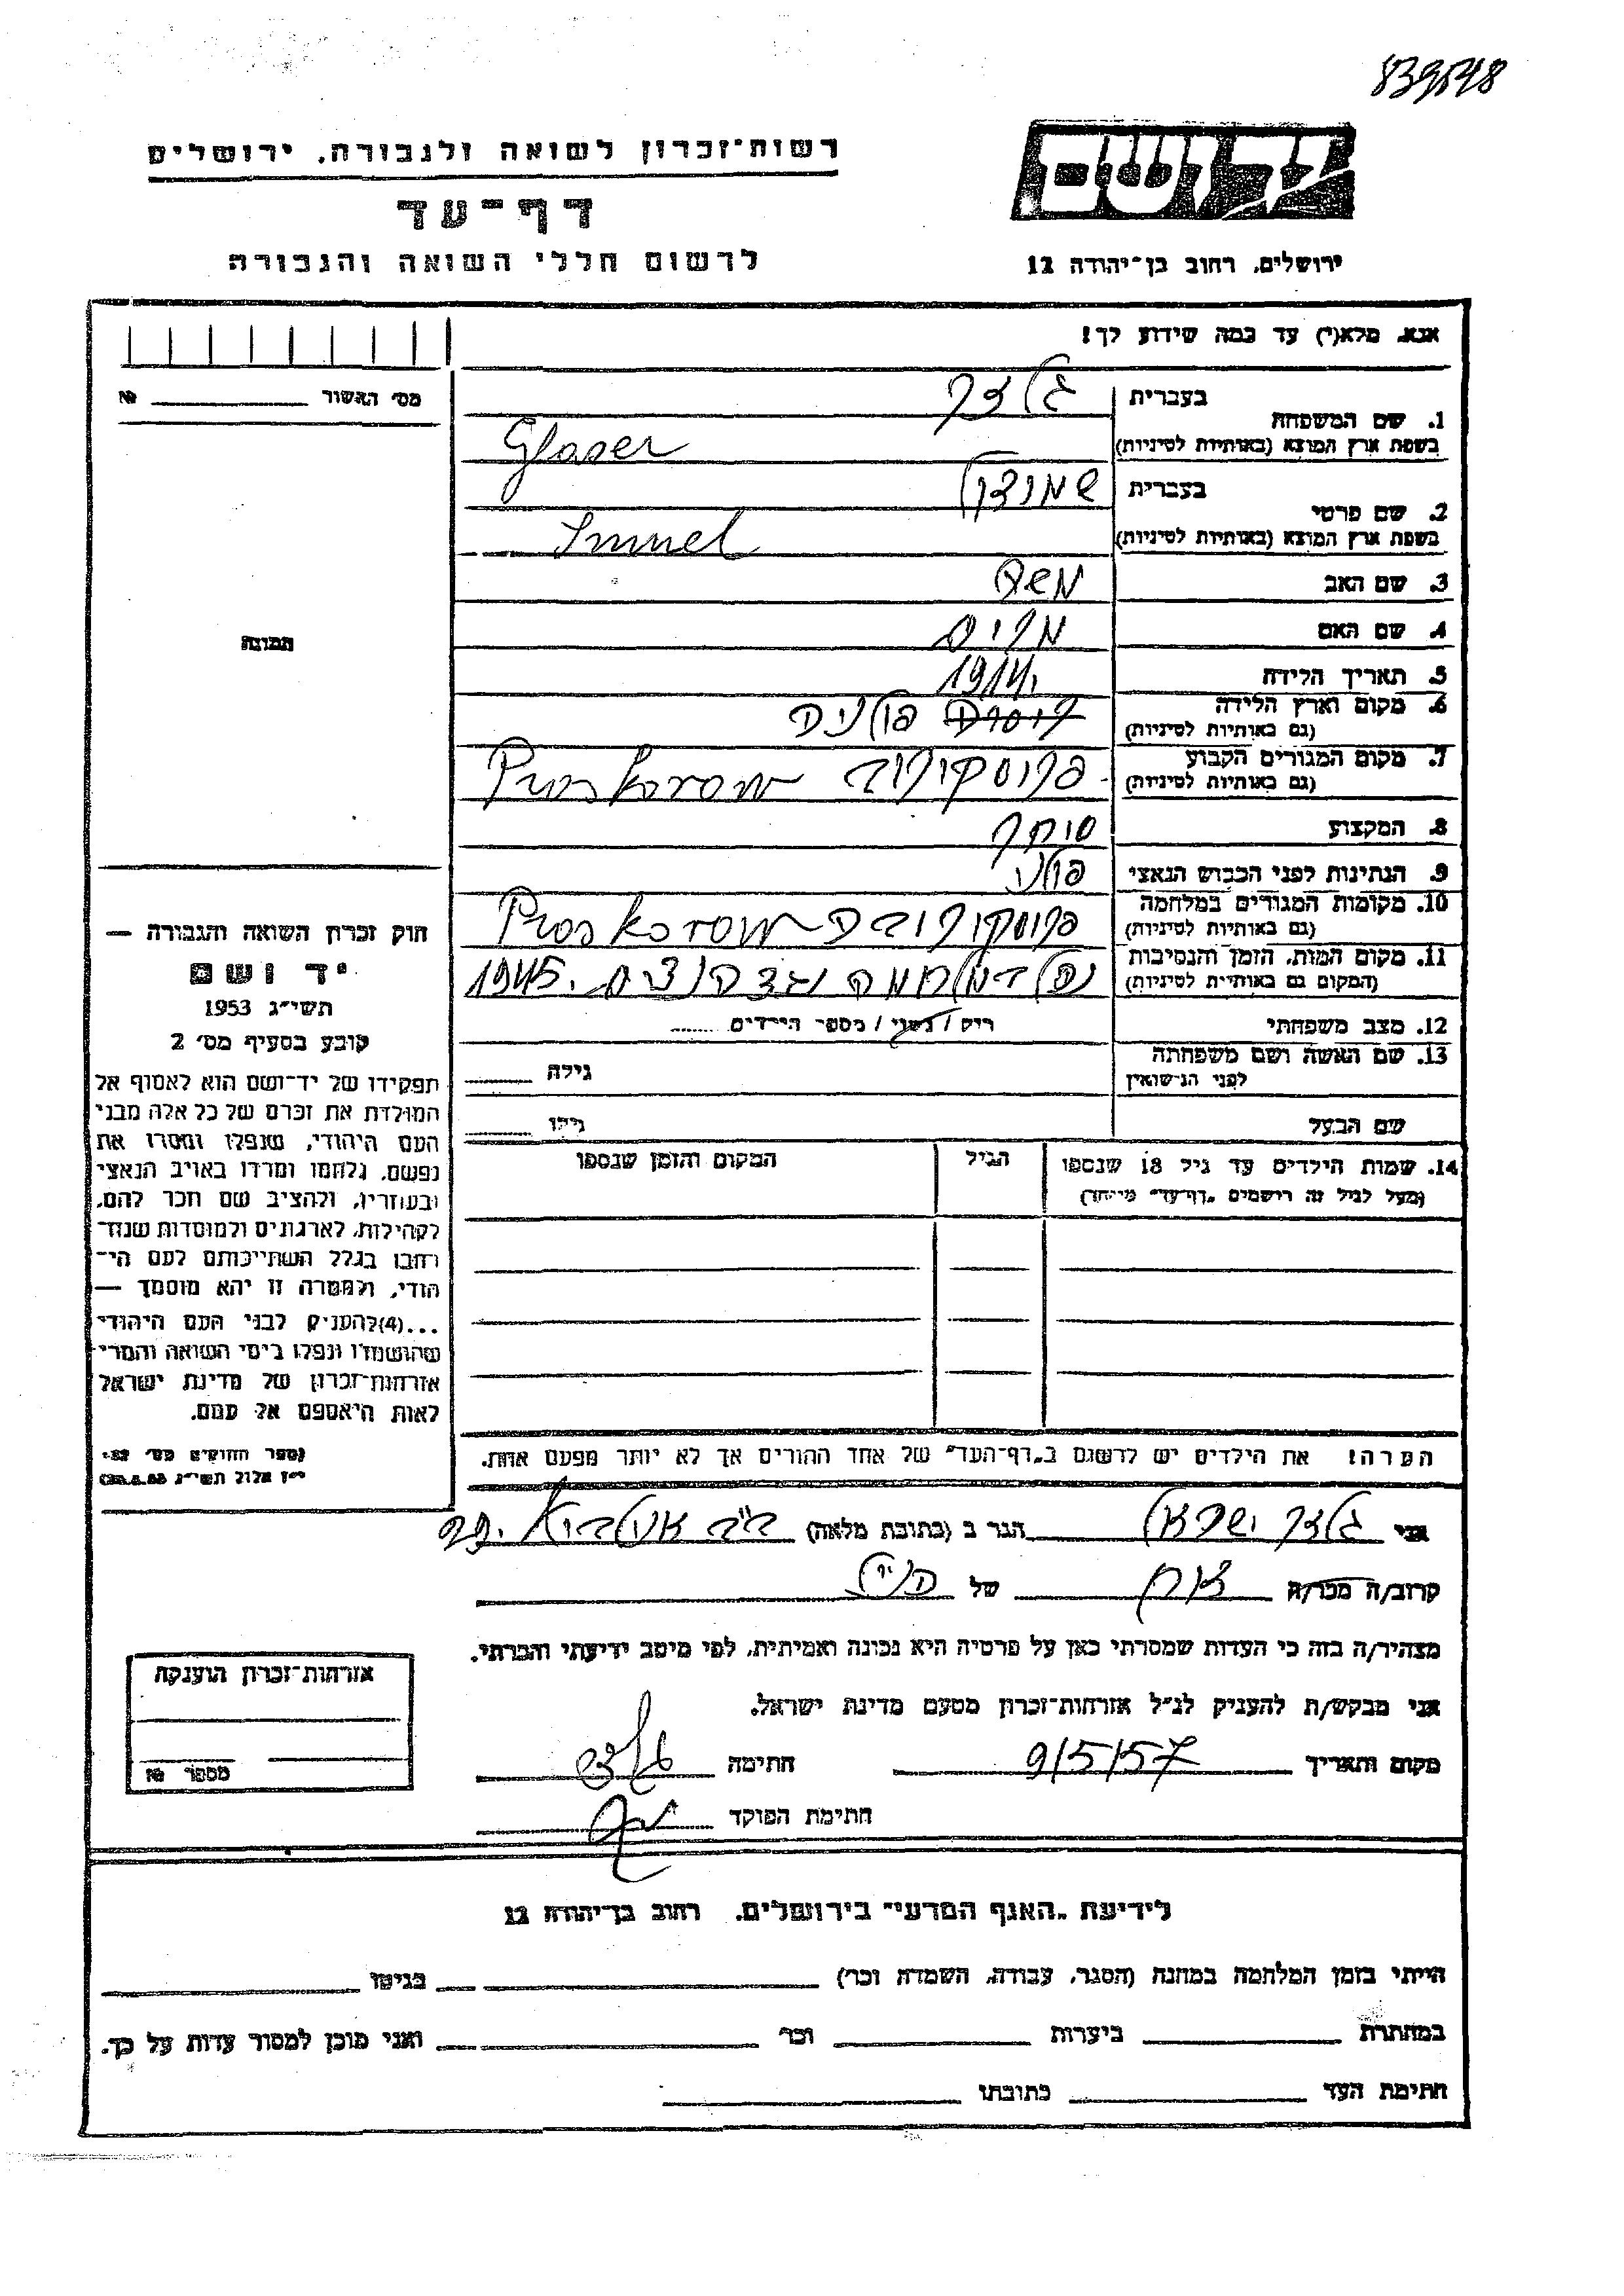 839548
יד ושם
רשות־זכרון לשואה ולגבורה, ירושלים
דף־עד
לרשום חללי השואה והגבורה
ירושלים, רחוב בן־יהודה 12
אנא, מלא(י) עד כמה שידוע לך!
מס׳ האשור № 
1. שם המשפחה בעברית גלזר
בשפת ארץ המוצא (באותיות לטיניות) Glaser
2. שם פרטי בעברית
בשפת ארץ המוצא (באותיות לטיניות)
3. שם האב משה
4. שם האם מרים
5. תאריך הלידה 1914
6. מקום וארץ הלידה (גם באותיות לטיניות) פולניה
7. מקום המגורים הקבוע (גם באותיות לטיניות) פרוסקורוב Proskorow
8. המקצוע סוחר
9. הנתינות לפני הכבוש הנאצי פולני
10. מקומות המגורים במלחמה (גם באותיות לטיניות) פרוסקורוב Proskorow
11. מקום המות, הזמן והנסיבות (המקום גם באותיות לטיניות) נפל במלחמה 1945
12. מצב משפחתי רוק / נשוי / מספר הילדים
13. שם האשה ושם משפחתה לפני הנישואין גילה
שם הבעל גילו
14. שמות הילדים עד גיל 18 שנספו (מעל לגיל זה רושמים „דף־עד״ מיוחד) הגיל המקום והזמן שנספו
הערה! את הילדים יש לרשום ב„דף־העד״ של אחד ההורים אך לא יותר מפעם אחת.
תמונה
חוק זכרון השואה והגבורה —
יד ושם
תשי״ג 1953
קובע בסעיף מס׳ 2
תפקידו של יד־ושם הוא לאסוף אל
המולדת את זכרם של כל אלה מבני
העם היהודי, שנפלו ומסרו את
נפשם, נלחמו ומרדו באויב הנאצי
ובעוזריו, ולהציב שם וזכר להם,
לקהילות, לארגונים ולמוסדות שנח־
רבו בגלל השתייכותם לעם הי־
הודי, ולמטרה זו יהא מוסמך —
...(4) להעניק לבני העם היהודי
שהושמדו ונפלו בימי השואה והמרי
אזרחות־זכרון של מדינת ישראל
לאות היאספם אל עמם.
(ספר החוקים מס׳ 132
י״ז אלול תשי״ג 28.8.53)
אני גלזר ישראל הגר ב (כתובת מלאה)
קרוב/ה מכר/ה אח של הנ״ל
מצהיר/ה בזה כי העדות שמסרתי כאן על פרטיה היא נכונה ואמיתית, לפי מיטב ידיעתי והכרתי.
אני מבקש/ת להעניק לנ״ל אזרחות־זכרון מטעם מדינת ישראל.
מקום ותאריך 9/5/57 חתימה
חתימת הפוקד
אזרחות־זכרון הוענקה
מספר №
לידיעת „האגף המדעי״ בירושלים, רחוב בן־יהודה 12
הייתי בזמן המלחמה במחנה (הסגר, עבודה, השמדה וכו׳) בגיטו
במחתרת ביערות וכו׳ ואני מוכן למסור עדות על כך.
חתימת העד כתובתו